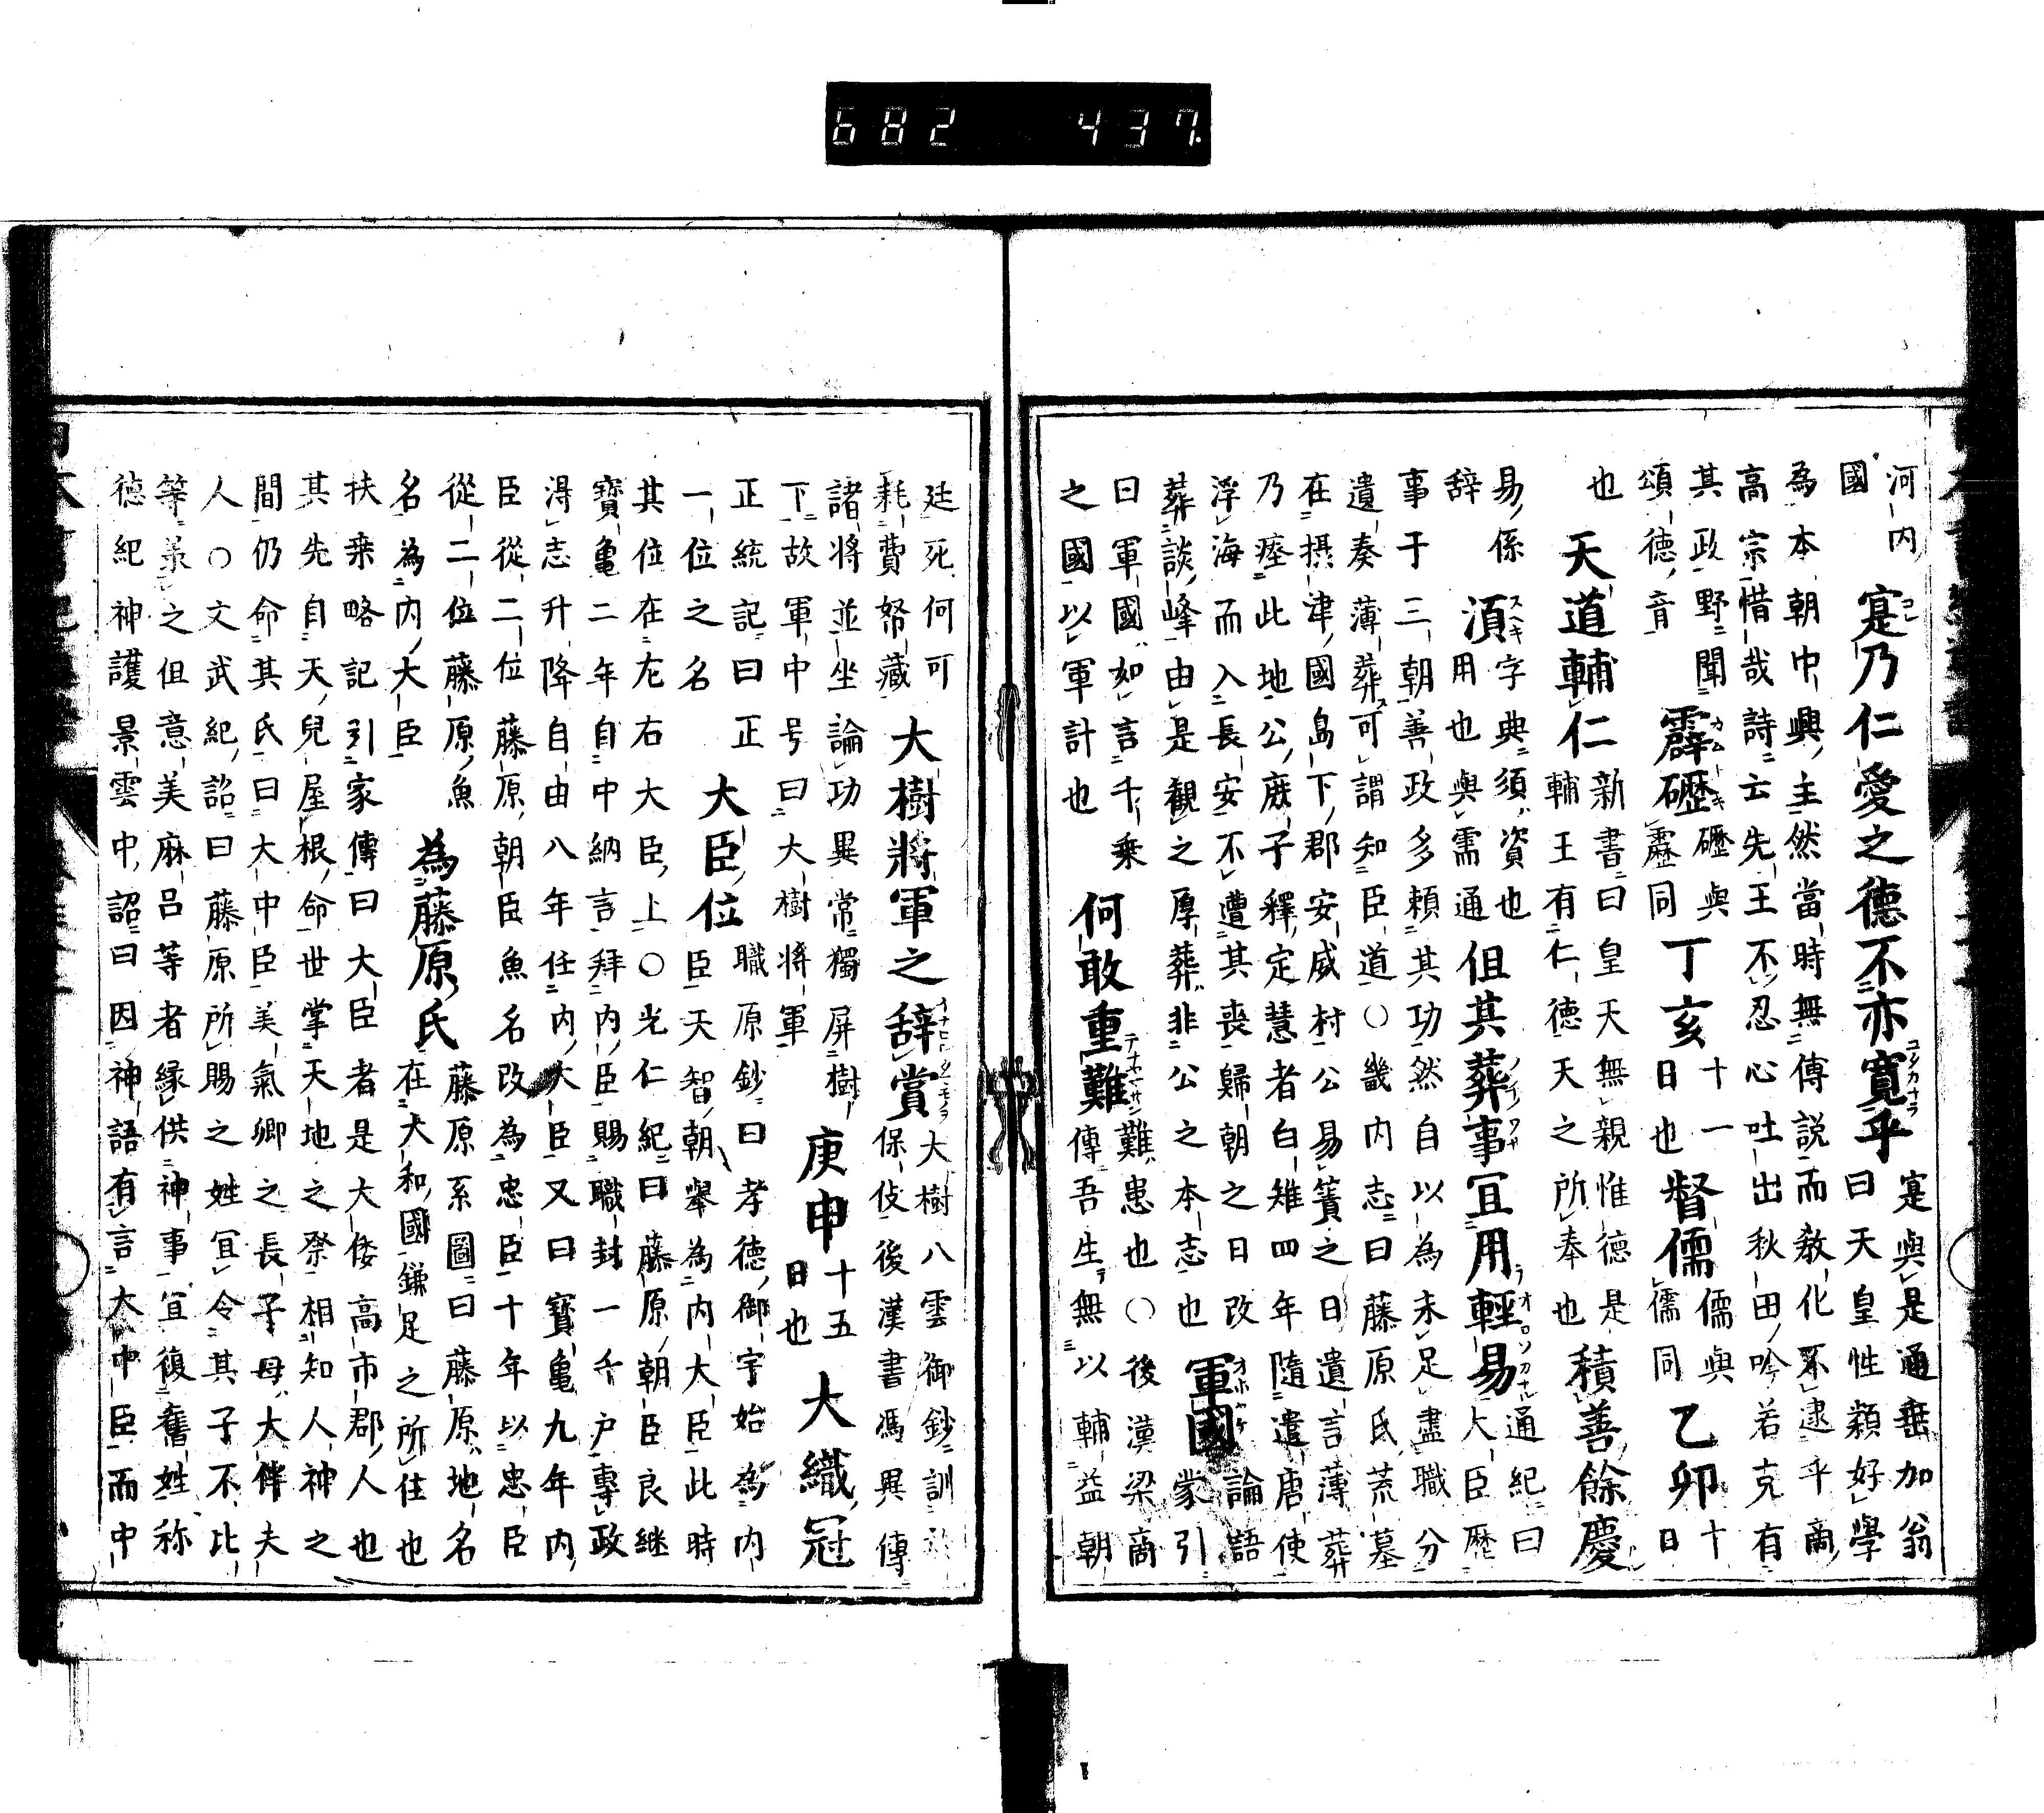 河内
國
寔乃仁愛之德不亦寛乎
寔與是通垂加翁
曰天皇性頴好學
為本朝中興主然當時無傳説而敎化不逮乎商
高宗惜哉詩云先王不忍心吐出秋田吟若克有
其政野聞
頌德音
霹礰
礰與
靂同
丁亥
十一
日也
督儒
儒與
儒同
乙卯
十
日
也
天道輔仁
新書曰皇天無親惟德是
輔王有仁德天之所奉也
積善餘慶
易係
辞
須
字典須資也
用也與需通
但其葬事宜用輕易
通紀曰
大臣歷
事于三朝善政多頼其功然自以為未足盡職分
遺奏薄葬可謂知臣道○畿内志曰藤原氏荒墓
在摂津國島下郡安威村公易簀之日遺言薄葬
乃瘞此地公庶子釋定慧者白雉四年隨遣唐使
浮海而入長安不遭其喪歸朝之日改
葬談峰由是觀之厚葬非公之本志也
軍國
論語
蒙引
曰軍國如言千乗
之國以軍計也
何敢重難
難患也○後漢梁商
傳吾生無以輔益朝
廷死何可
耗費帑藏
大樹將軍之辞賞
大樹八雲御鈔訓
保伎後漢書馮異傳
諸將並坐論功異常獨屏樹
下故軍中号曰大樹將軍
庚申
十五
日也
大織冠
正統記曰正
一位之名
大臣位
職原鈔曰孝德御宇始為内
臣天智朝擧為内大臣此時
其位在左右大臣上○光仁紀曰藤原朝臣良継
寶亀二年自中納言拜内臣賜職封一千户專政
得志升降自由八年任内大臣又曰寳亀九年内
臣從二位藤原朝臣魚名改為忠臣十年以忠臣
從二位藤原魚
名為内大臣
為藤原氏
藤原系圖曰藤原地名
在大和國鎌足之所住也
扶桒略記引家傳曰大臣者是大倭高市郡人也
其先自天兒屋根命世掌天地之祭相知人神之
間仍命其氏曰大中臣美氣卿之長子母大伴夫
人○文武紀詔曰藤原所賜之姓宜令其子不比
等羕之但意美麻呂等者縁供神事宜復舊姓称
德紀神護景雲中詔曰因神語有言大中臣而中
682 437